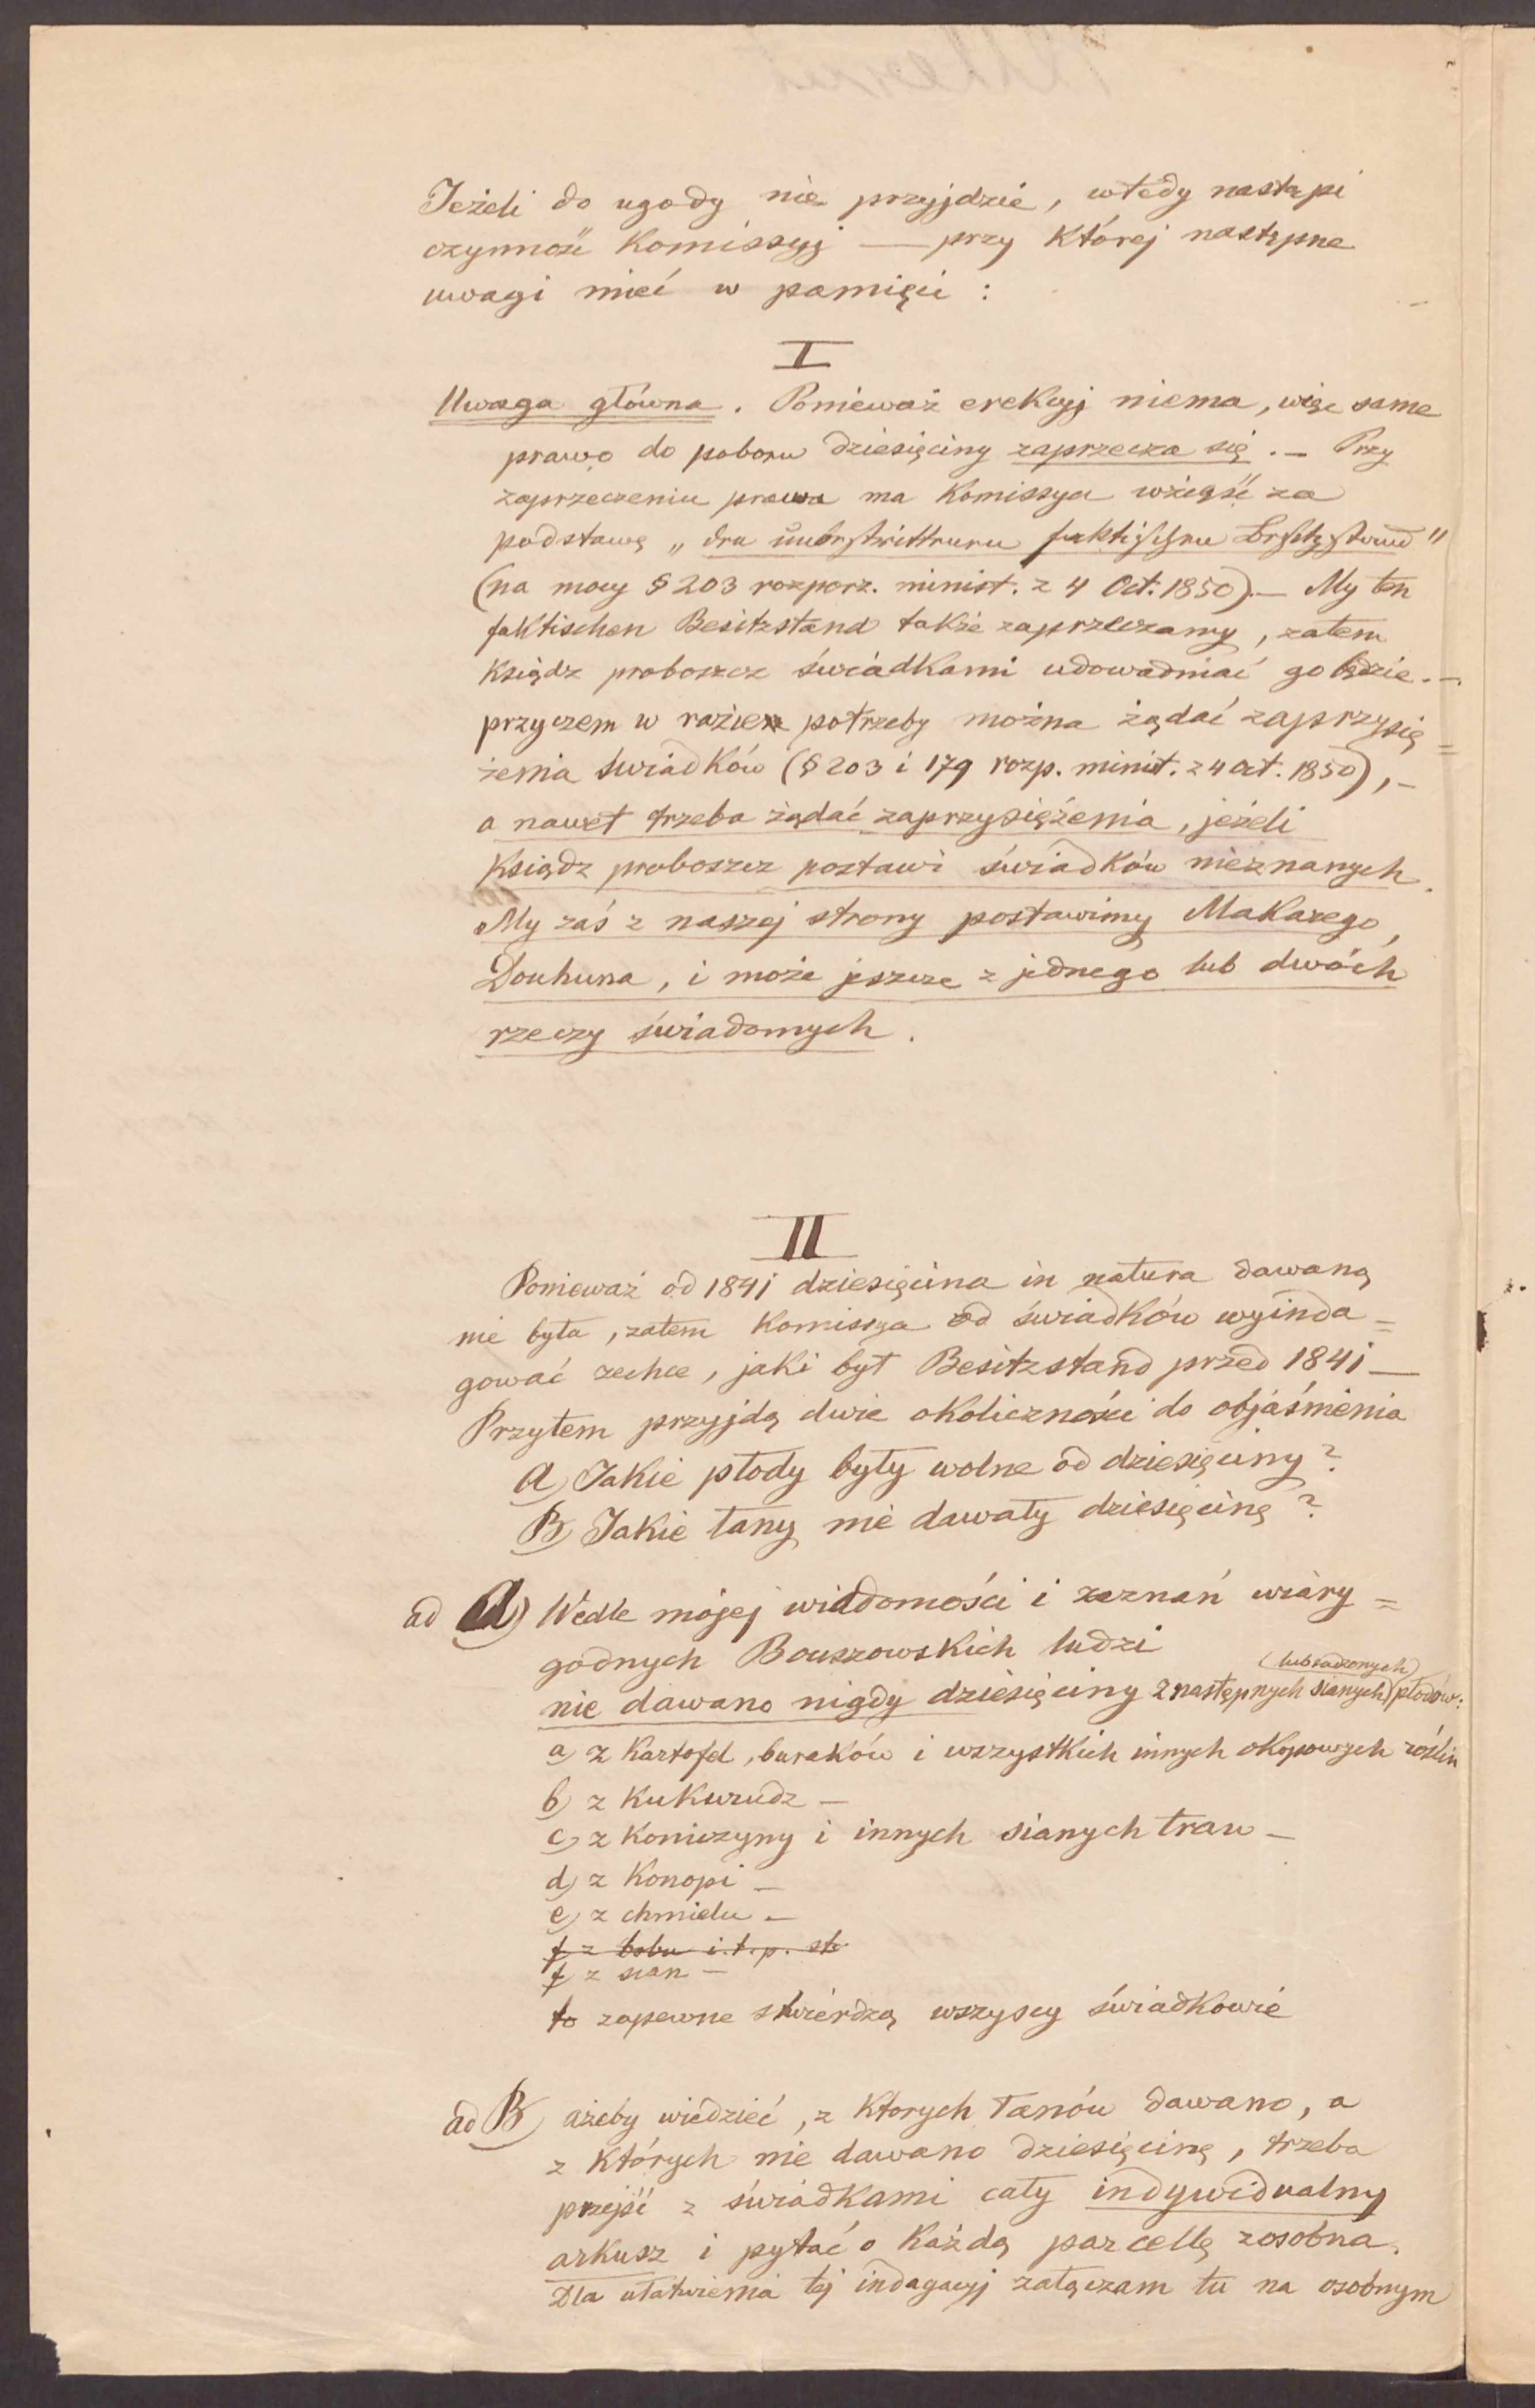 Jeżeli do ugody nie przyjdzie, wtedy nastąpi
czynność Komissyj — przy Której następne
uwagi mieć w pamięci :
I
Uwaga główna. Ponieważ erekcyj niema, więc same
prawo do poboru dziesięciny zaprzecza się. — Przy
zaprzeczeniu prawa ma Komissya wziąść za
podstawę „den unbestrittenen faktischen Besitzstand"
(na mocy § 203 rozporz. minist. z 4 Oct. 1850). — My ten
faktischen Besitzstand także zaprzeczamy, zatem
Ksiądz proboszcz świadkami udowadniać go będzie. —
przyczem w razie potrzeby można żądać zaprzysię=
żenia świadków (§ 203 i 179 rozp. minist. z 4 Oct. 1850), —
a nawet trzeba żądać zaprzysiężenia, jeżeli
Ksiądz proboszcz postawi świadków nieznanych.
My zaś z naszej strony postawimy Makarego,
Douhuna, i może jeszcze z jednego lub dwóch
rzeczy świadomych.
II
Ponieważ od 1841 dziesięcina in natura dawaną
nie była, zatem Komissya od świadków wyinda=
gować zechce, jaki był Besitzstand przed 1841 —
Przytem przyjdą dwie okoliczności do objaśnienia
A) Jakie płody były wolne od dziesięciny?
B) Jakie łany nie dawały dziesięcinę?
ad A) Wedle mojej wiadomości i zeznań wiary=
godnych Bouszowskich ludzi
(lub sadzonych)
nie dawano nigdy dziesięciny z następnych sianych płodów:
a) z Kartofel, buraków i wszystkich innych okopowych roślin
b) z Kukurudz —
c) z Koniczyny i innych sianych traw —
d) z Konopi —
e) z chmielu —
f z bobu i.t.p. etc.
f) z sian —
to zapewne stwierdzą wszyscy świadkowie
ad B) ażeby wiedzieć, z Ktorych łanów dawano, a
z Których nie dawano dziesięcinę, trzeba
przejść z świadkami cały indywidualny
arkusz i pytać o Każdą parcellę zosobna.
Dla ułatwienia tej indagacyj załączam tu na osobnym